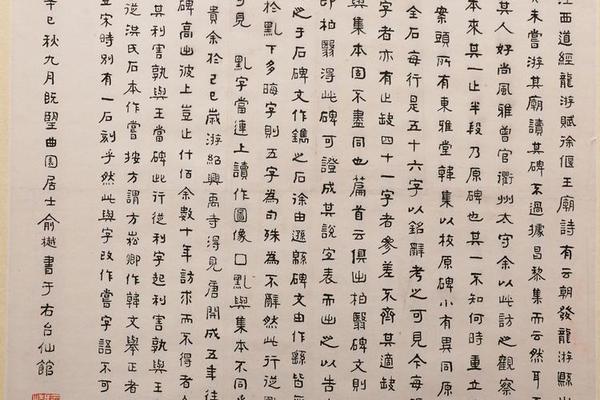 江西道經龍游賦徐偃王廟詩有云朝發龍游縣
未嘗游其廟讀其碑不過據昌黎集而云然耳
其人好尚風雅曾官衢州太守余以此訪之觀察
本來其一上半段乃原碑也其一不知何時重立
案頭所有東雅堂韓集以校原碑小有異同原
全石每行是五十六字以銘辭考之可見今每
字者亦有止缺四十一字者參差不齊其適缺
與集本固不盡同也篇首云俱出柏翳碑文則
即柏翳得此碑可證成其說宜表而出之以告
之于石碑文作鐫之石徐由遜縣碑文由作繇皆
於點下多晦字則五字為句殊為不辭然此行從
可見 點字當連上讀作圖像口點與集本不同
貴余於己巳歲游紹興禹寺得見唐開成五年往
碑高出彼上豈止什佰余數十年訪求而不得者
其利害孰與王當碑此行從利字起利害孰與王
從洪氏石本作嘗 按方謂方崧卿作韓文舉正者
宋時別有一石刻乎然此與字改作嘗字語不可
辛巳秋九月既望曲園居士俞樾書于右台仙館